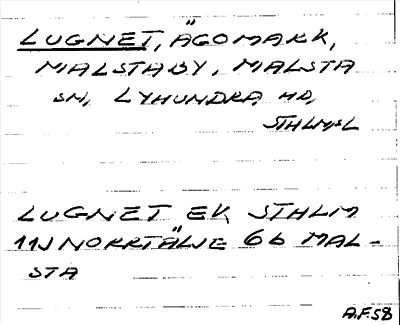 LUGNET, ÄGOMARK,
MALSTABY, MALSTA
SN, LYHUNDRA HD,
STHLMSL
LUGNET EK, STHLM
11J NORRTÄLJE 6b MAL-
STA
A.F.58